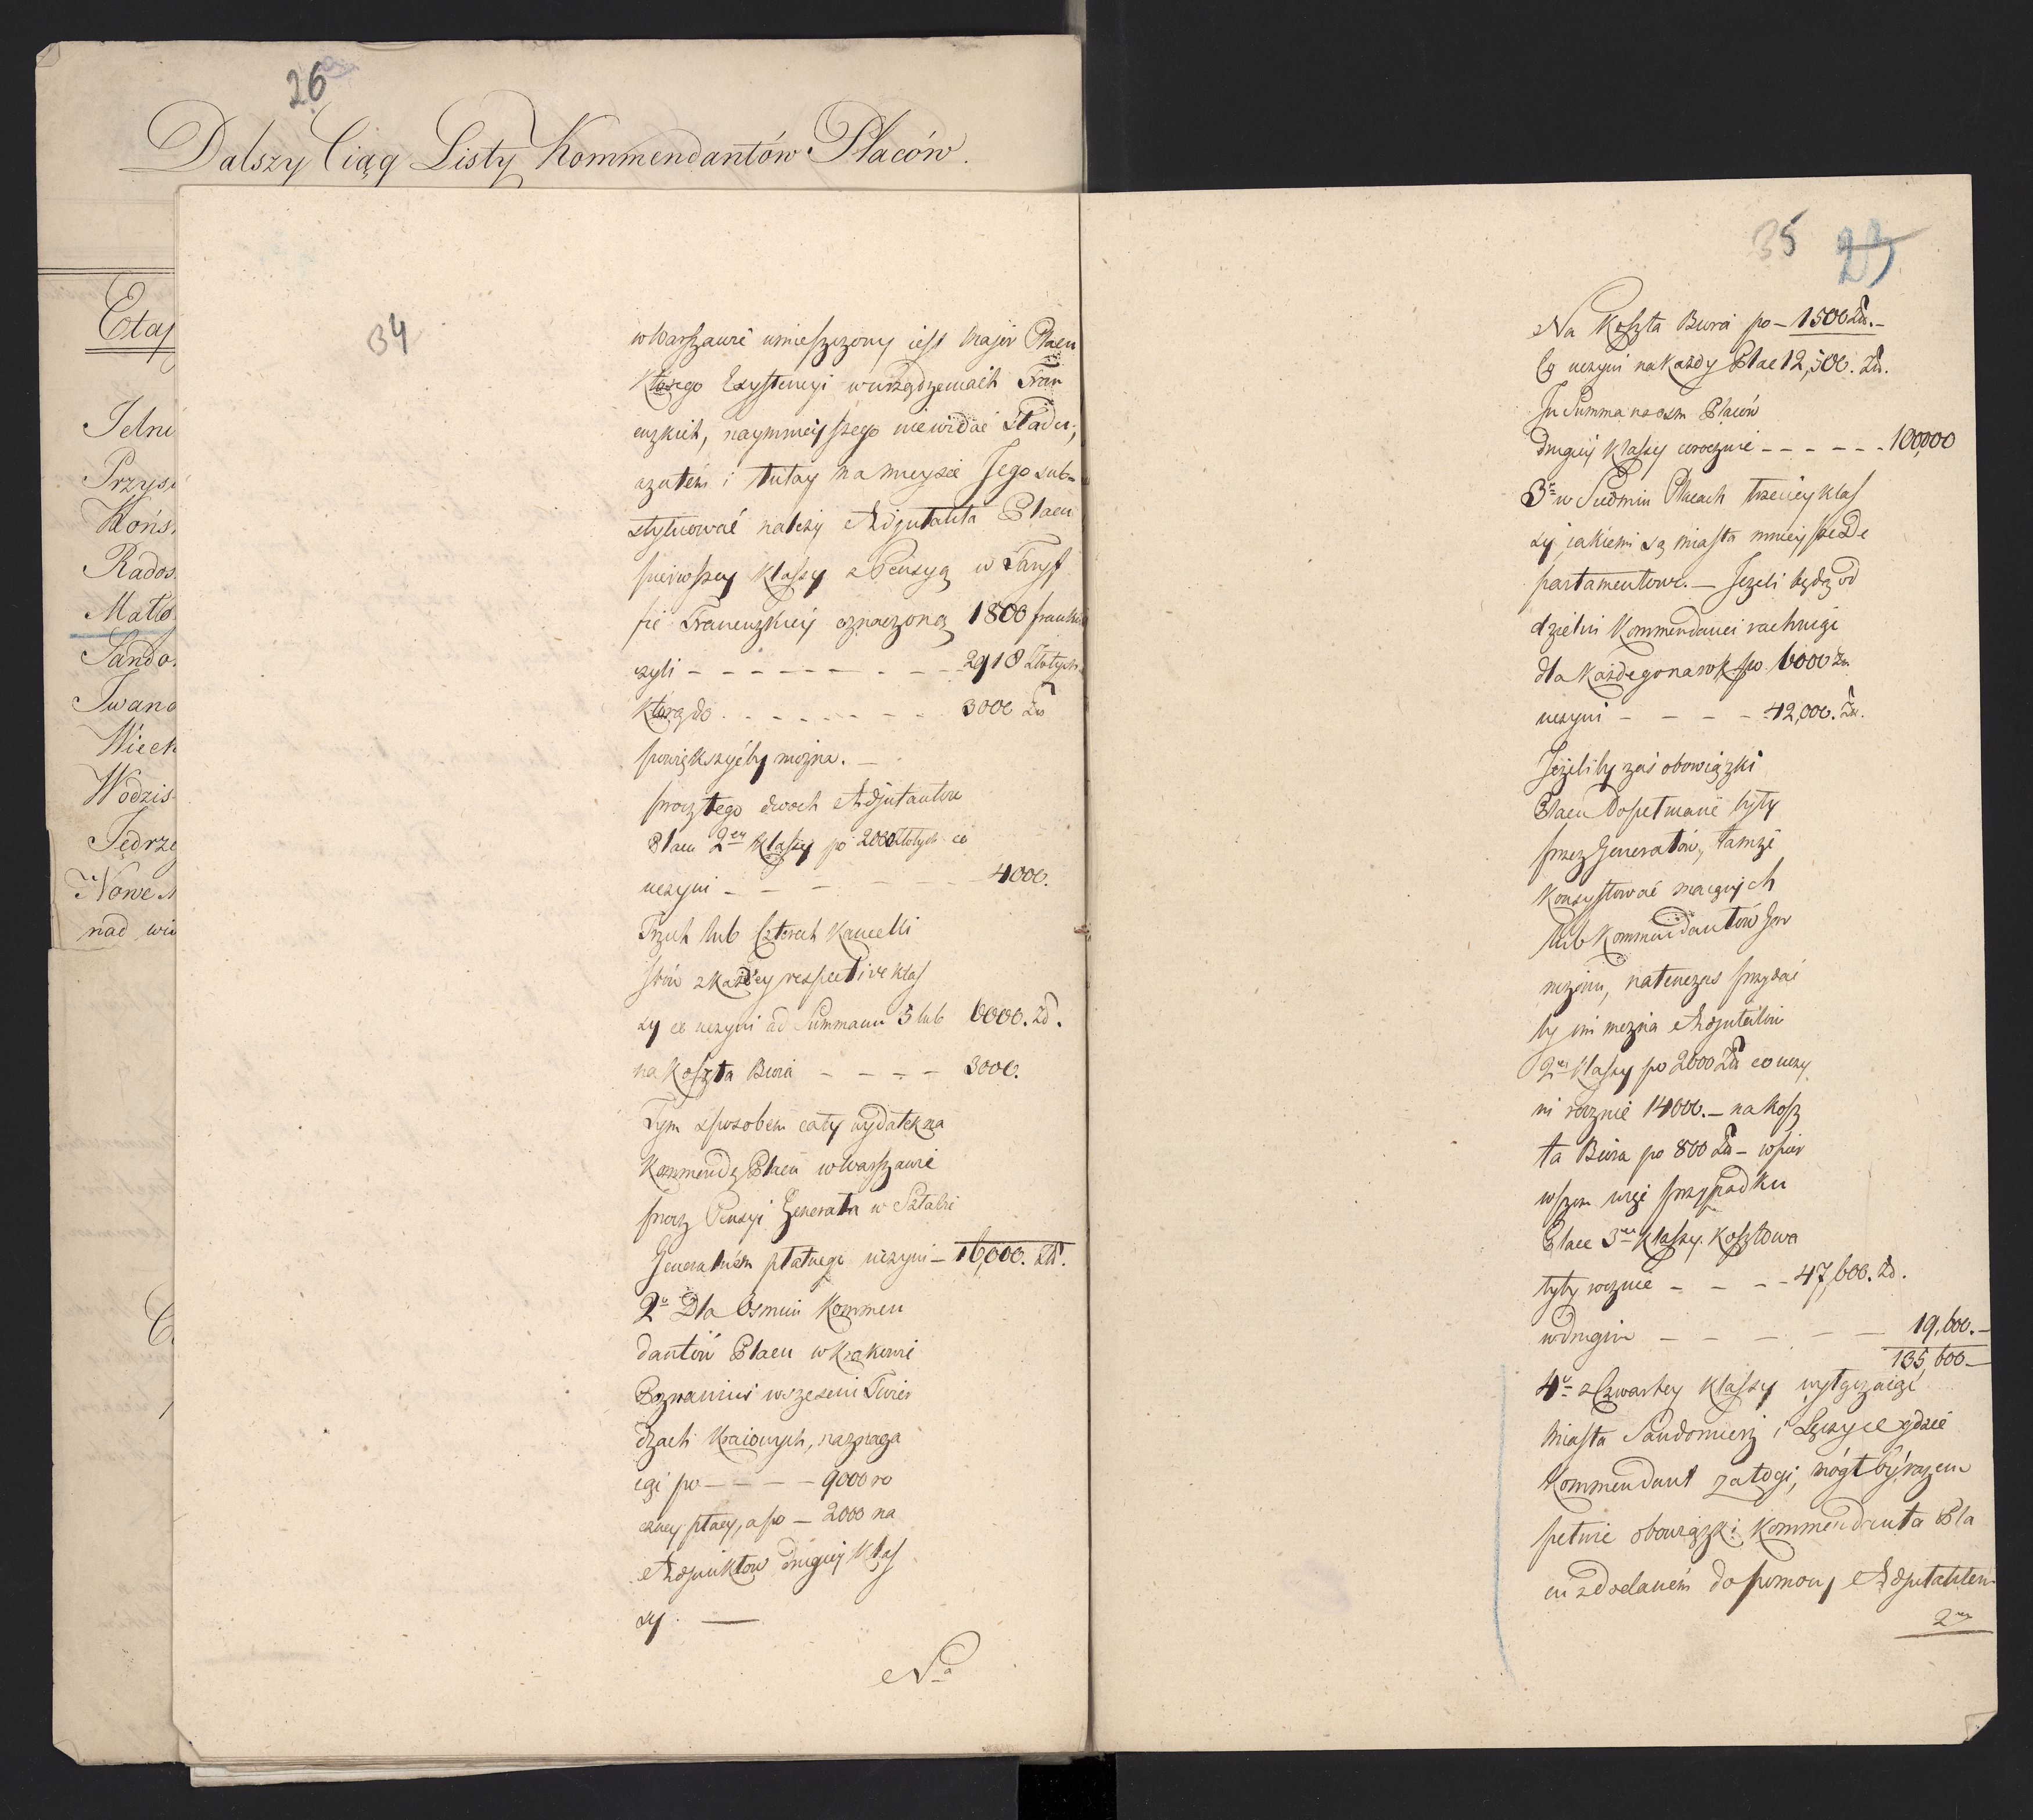 26
Dalszy Ciąg Listy Kommendantów Płaców.
Etap
Jelni
Przys
Końs
Rados
Mało
Sando
Iwano
Wiech
Wodzis
Jędrze
Nowe M
nad wi
34
w Warszawie umieszczony iest Major Placu
którego Exystencyi w urządzeniach Fran
cuzkich, naymnieyszego nie widać śladu;
azatém i tutay na mieysce Jego sub-
stytuować należy Adjutanta Placu
pierwszey klassy z Pensyą w Taryf
fie Francuzkiey oznaczoną 1800 franków
czyli - - - - - - - - 2918 Złotych
którą do - - - - - - - 3000 Zł
powiększyćby można. —
procz tego dwoch Adjutantów
Placu 2ey klassy po 2000 Złotych co
uczyni - - - - - - 4000.
Trzech lub Czterech Kancelli
stów z każdey respective klas
sy co uczyni ad Summam 5 lub 6000. Zł.
na koszta Biura - - - - 3000.
Tym sposobem cały wydatek na
Kommendę Placu w Warszawie
procz Pensyi Generała w Sztabie
Generalném płatnego uczyni - 16,000. Zł.
2o Dla Osmiu Kommen
dantów Placu w Krakowie
Poznaniu i w sześciu Twier
dzach Kraiowych, naznacza
iąc po - - - - 9000 ro
czney płacy, a po - 2000 na
Adjunktów drugiey klas
sy. —
Na
35 23
Na koszta Biura po - 1500 Zł. -
Co uczyni na każdy Plac 12,500. Zł.
In Summa na osm Placów
drugiey klassy corocznie - - - - - - 100,000
3o w Siedmiu Placach trzeciey klas
sy iakiemi są miasta mnieysze De
partamentowe. - Jeżeli będą od
dzielni Kommendanci rachuiąc
dla każdego na rok po 6000 Zł.
uczyni - - - - 42,000. Zł.
Jeżeliby zaś obowiązki
Placu dopełniane były
przez Generałów, tamże
konsystować maiących
lub Kommendantów Gar
nizonu, natenczas przydać
by im można Adjutantów
2ey klassy po 2000 Zł co uczy
ni rocznie 14000. - na kosz
ta Biura po 800 Zł - w pier
wszem więc przypadku
Place 3ey klassy kosztowa
łyby rocznie - - - - 47,600. Zł.
w drugim - - - - - 19,600. -
135,600 -
4o z Czwartey klassy wyłączaiąc
miasta Sandomierz i Łęczyce gdzie
Kommendant załogi, mógłby razem
pełnić obowiązki Kommendanta Pla
cu z dodaném do pomocy Adjutantem
2ey